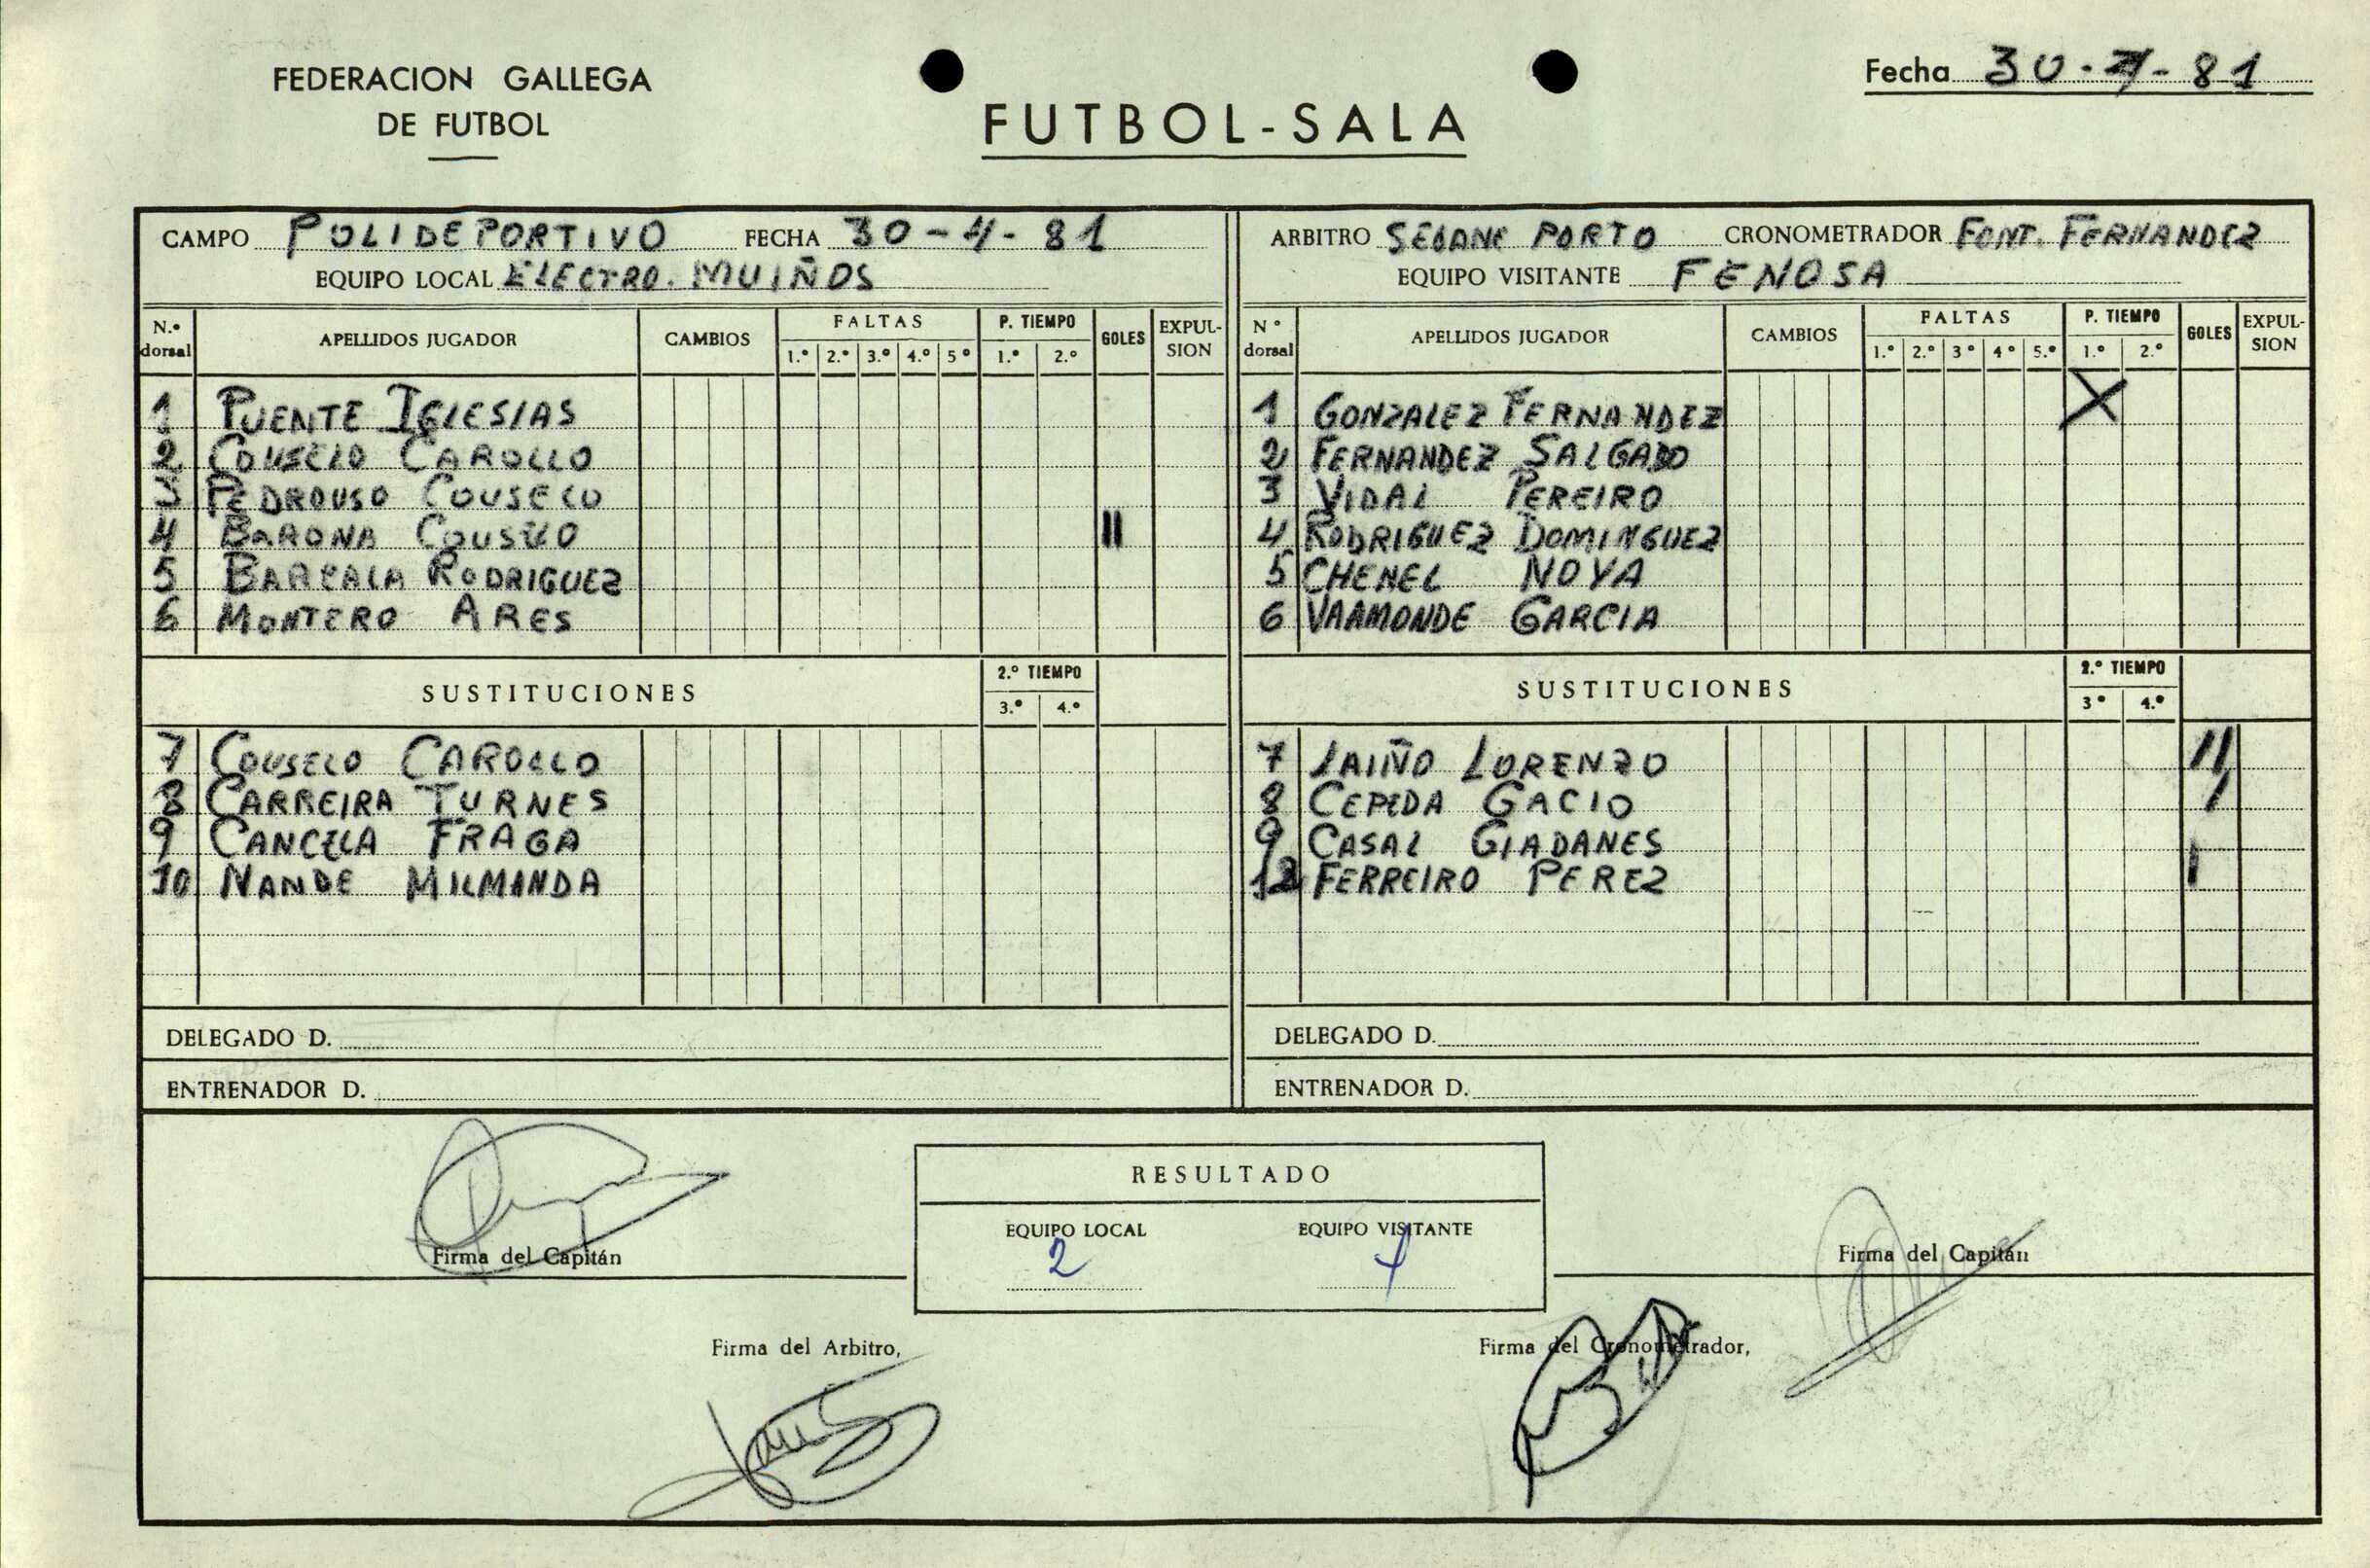 FEDERACION GALLEGA
DE FUTBOL
FUTBOL-SALA
Fecha 30-4-81
CAMPO POLIDEPORTIVO FECHA 30-4-81
EQUIPO LOCAL ELECTRO. MUIÑOS
ARBITRO SEOANE PORTO CRONOMETRADOR FONT. FERNANDEZ
EQUIPO VISITANTE FENOSA
N.º dorsal APELLIDOS JUGADOR CAMBIOS FALTAS 1.º 2.º 3.º 4.º 5º P. TIEMPO 1.º 2.º GOLES EXPULSION
1 PUENTE IGLESIAS
2 COUSELO CAROLLO
3 PEDROUSO COUSELO
4 BARONA COUSELO II
5 BARCALA RODRIGUEZ
6 MONTERO ARES
SUSTITUCIONES 2.º TIEMPO 3.º 4.º
7 COUSELO CAROLLO
8 CARREIRA TURNES
9 CANCELA FRAGA
10 NANDE MILMANDA
DELEGADO D.
ENTRENADOR D.
Nº dorsal APELLIDOS JUGADOR CAMBIOS FALTAS 1.º 2.º 3º 4º 5.º P. TIEMPO 1.º 2.º GOLES EXPULSION
1 GONZALEZ FERNANDEZ X
2 FERNANDEZ SALGADO
3 VIDAL PEREIRO
4 RODRIGUEZ DOMINGUEZ
5 CHENEL NOYA
6 VAAMONDE GARCIA
SUSTITUCIONES 2.º TIEMPO 3º 4.º
7 LAIÑO LORENZO II
8 CEPEDA GACIO I
9 CASAL GIADANES I
12 FERREIRO PEREZ
DELEGADO D.
ENTRENADOR D.
RESULTADO
EQUIPO LOCAL EQUIPO VISITANTE
2 4
Firma del Capitán
Firma del Capitán
Firma del Arbitro,
Firma del Cronometrador,